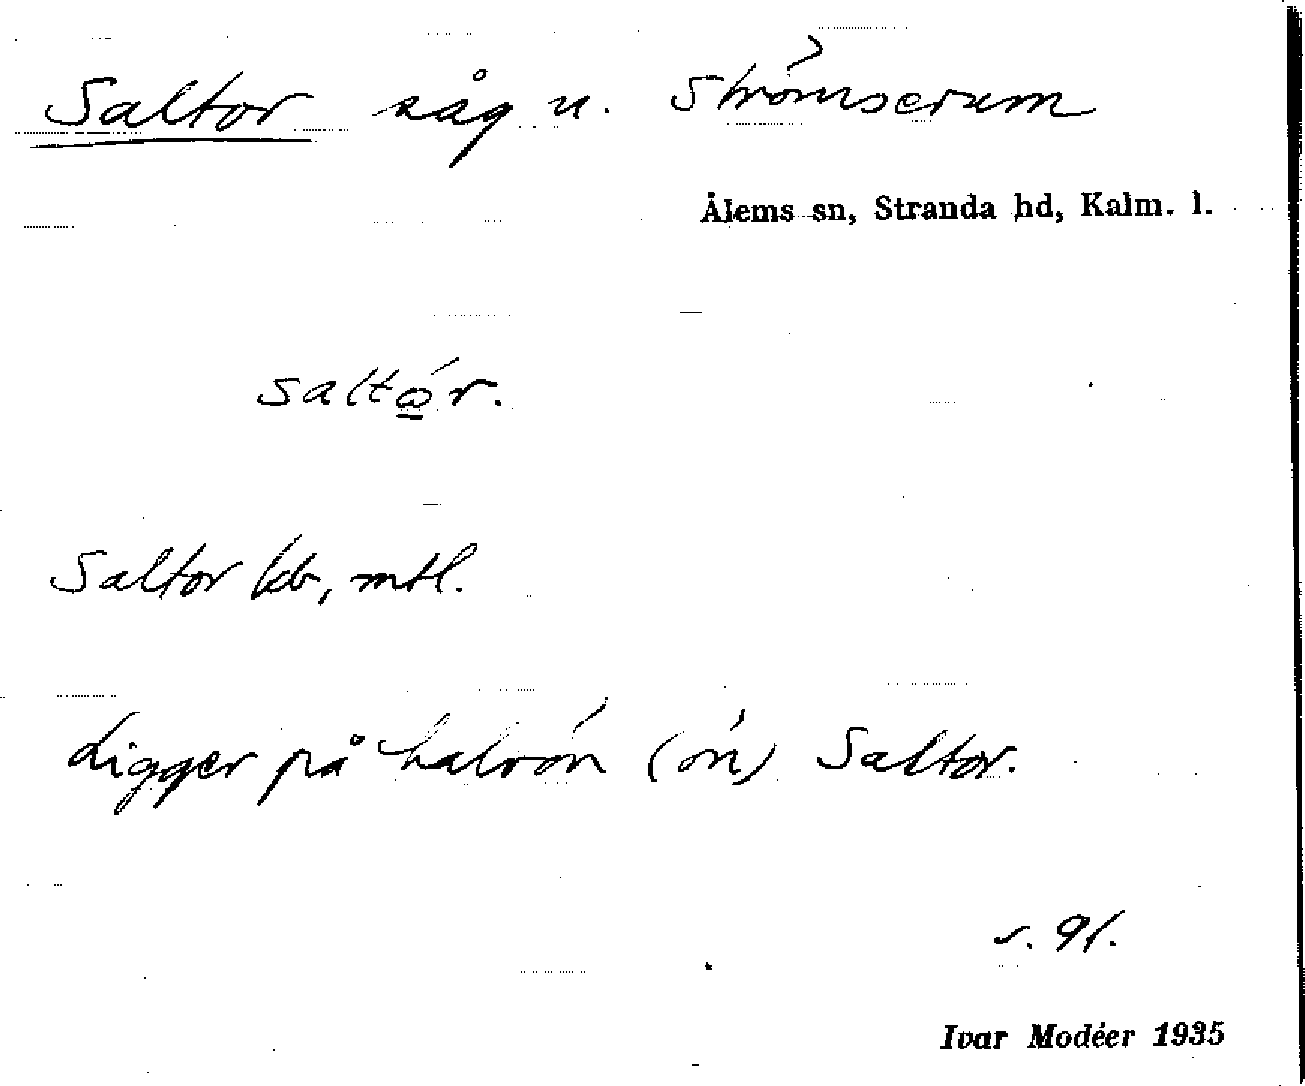 Saltor såg u. Strömserum
Ålems sn, Stranda hd, Kalm. l.
saltór.
Saltor kb, mtl.
Ligger på halvön (ön) Saltor.
s. 91.
Ivar Modéer 1935